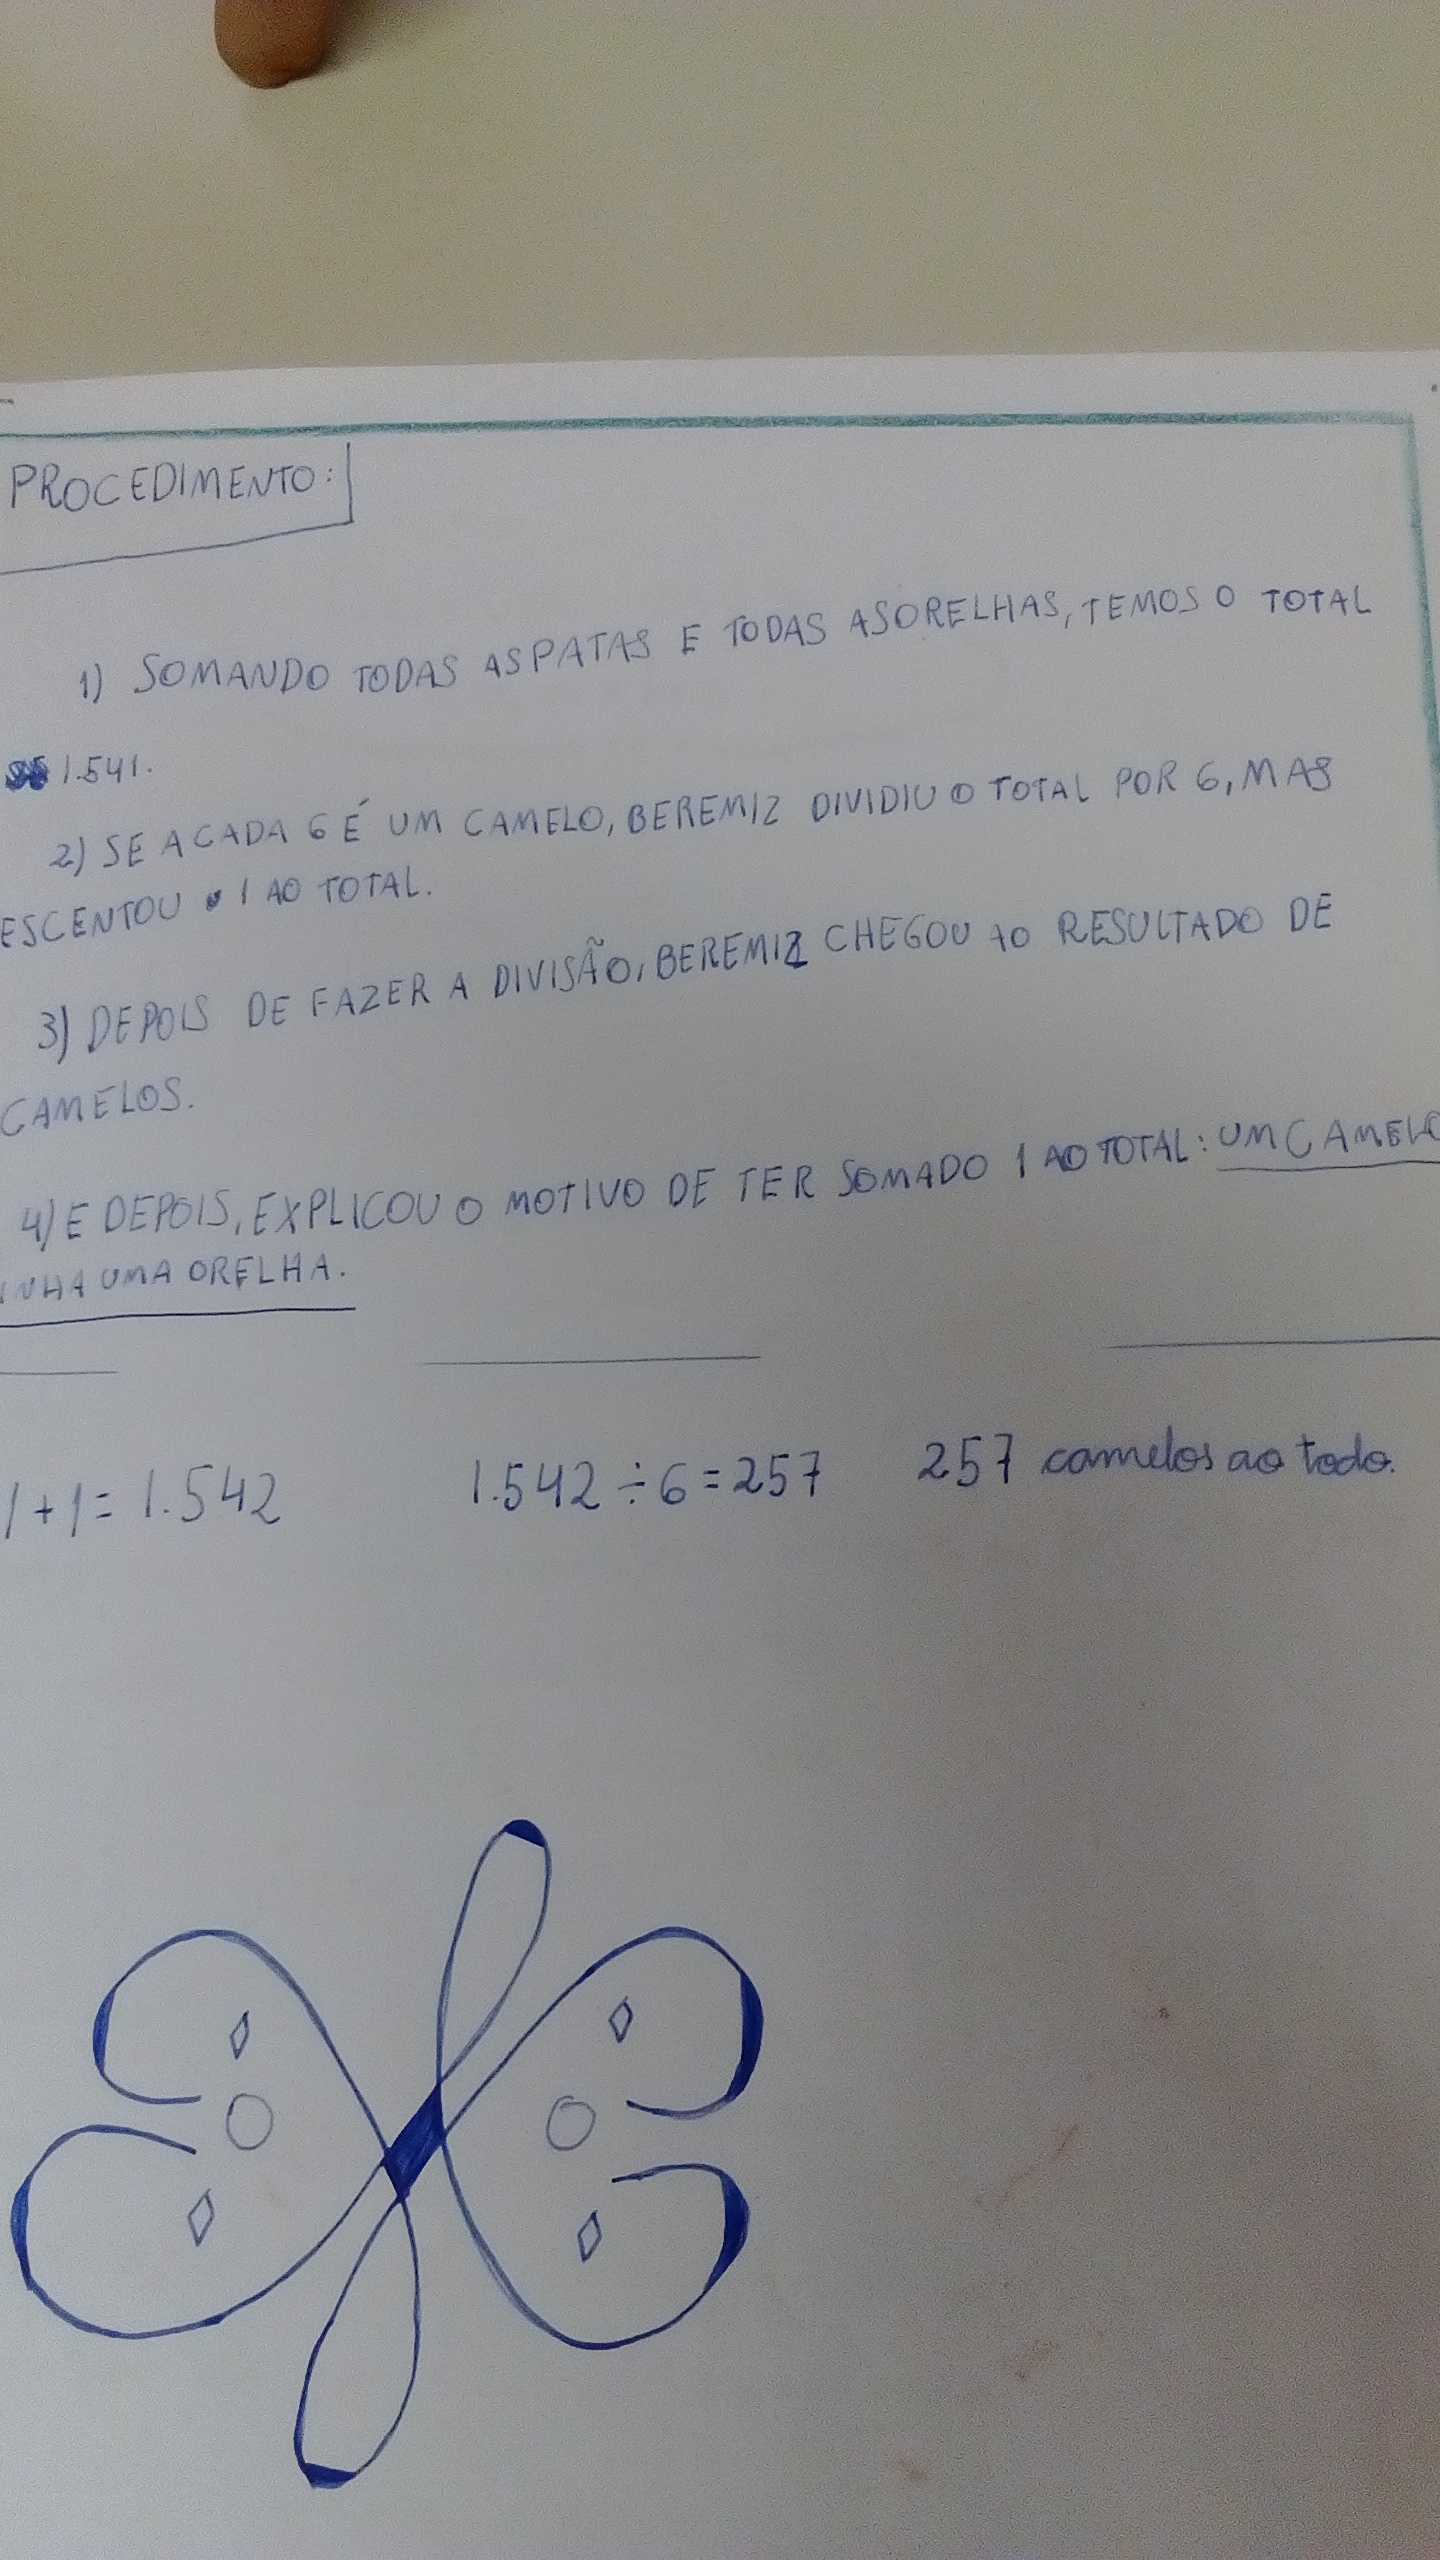 PROCEDIMENTO:
1) SOMANDO TODAS AS PATAS E TODAS AS ORELHAS, TEMOS O TOTAL
1.541.
2) SE A CADA 6 É UM CAMELO, BEREMIZ DIVIDIU O TOTAL POR 6, MAS
ESCENTOU 1 AO TOTAL.
3) DEPOIS DE FAZER A DIVISÃO, BEREMIZ CHEGOU AO RESULTADO DE
CAMELOS.
4) E DEPOIS, EXPLICOU O MOTIVO DE TER SOMADO 1 AO TOTAL: UM CAMELO
INHA UMA ORELHA.
1 + 1 = 1.542 1.542 ÷ 6 = 257 257 camelos ao todo.